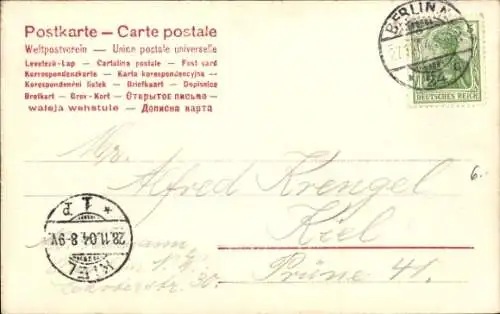 Postkarte — Carte postale
Weltpostverein — Union postale universelle
Levelezö-Lap — Cartolina postale — Post card
Korrespondenzkarte — Karta korespondencyjna —
Korespondenční lístek — Briefkaart — Dopisnice
Brefkort — Brev-Kort — Открытое письмо —
waleja wehstule — Дописна карта
BERLIN, N.
24
DEUTSCHES REICH
Mr.
Alfred Krengel
Kiel
Prüne 41.
6.-
* 1 P
28.11.04. 8-9V.
KIEL
30.